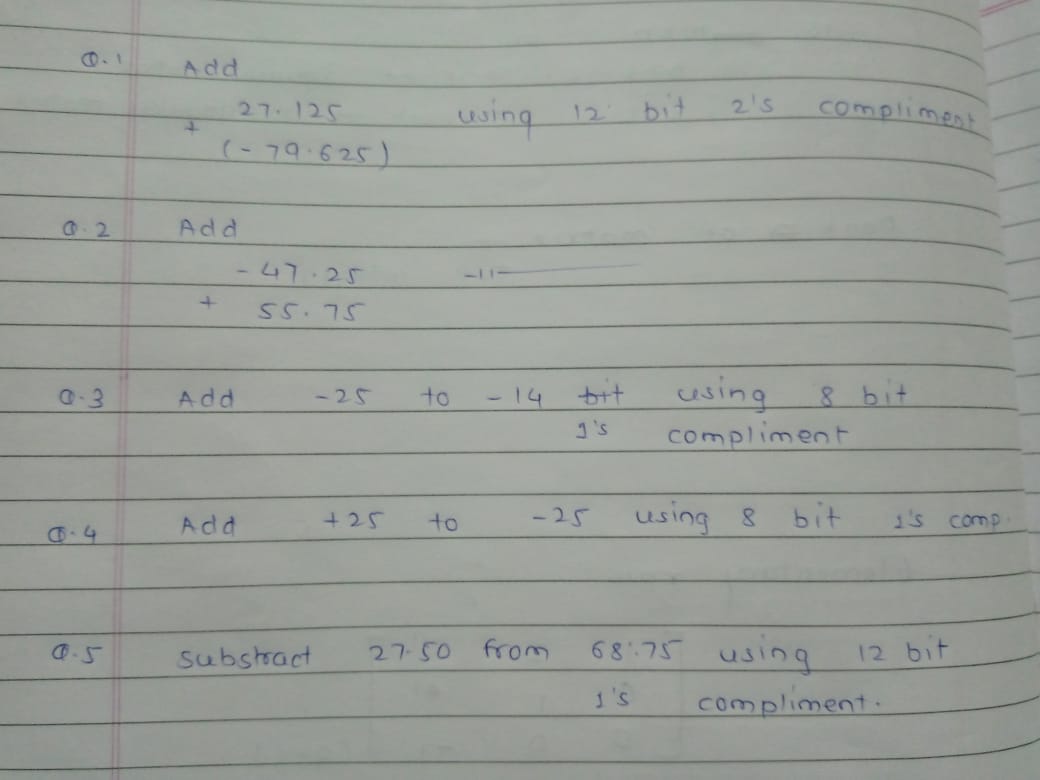 Q.1 Add
27.125 using 12 bit 2's compliment
+
(-79.625)
Q.2 Add
-47.25 -11-
+ 55.75
Q.3 Add -25 to -14 bit using 8 bit
1's compliment
Q.4 Add +25 to -25 using 8 bit 1's comp.
Q.5 substract 27.50 from 68.75 using 12 bit
1's compliment.